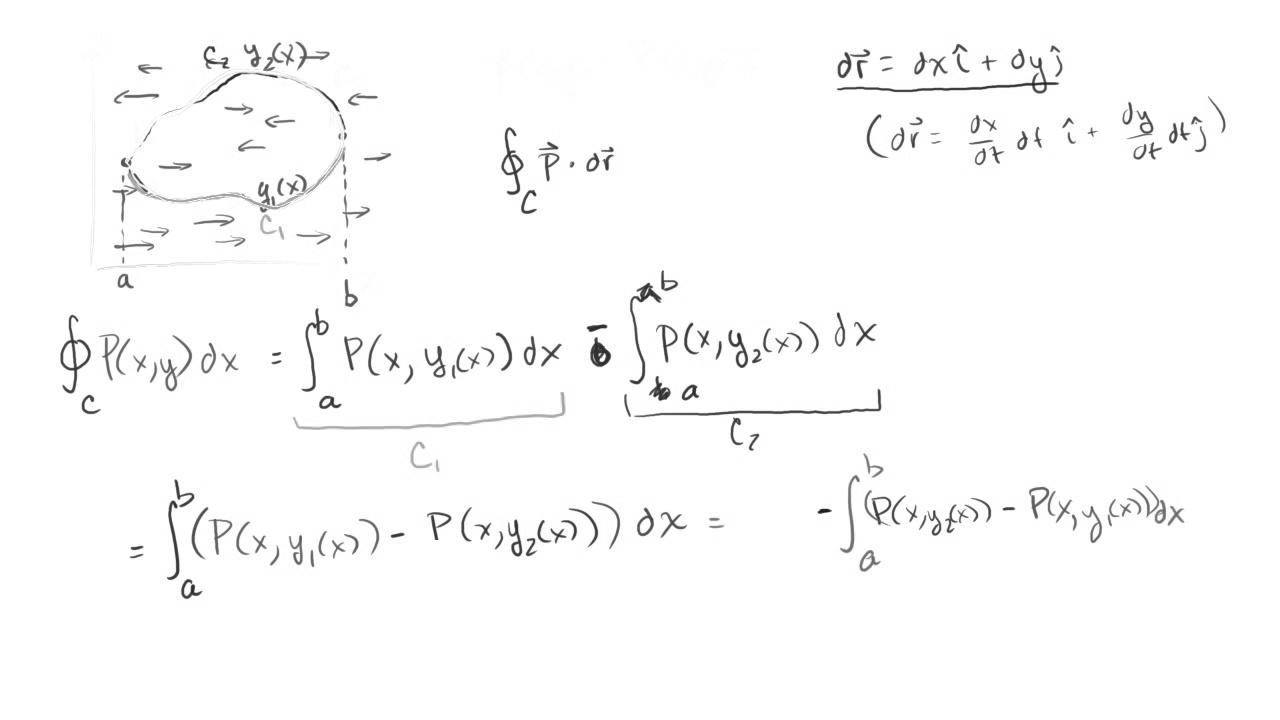 C₂ y₂(x)
y₁(x)
C₁
a
b
∮_C P⃗ · dr⃗
dr⃗ = dx î + dy ĵ
(dr⃗ = dx/dt dt î + dy/dt dt ĵ)
∮_C P(x,y) dx = ∫_a^b P(x, y₁(x)) dx - ∫_a^b P(x, y₂(x)) dx
C₁
C₂
= ∫_a^b (P(x, y₁(x)) - P(x, y₂(x))) dx = - ∫_a^b (P(x, y₂(x)) - P(x, y₁(x))) dx